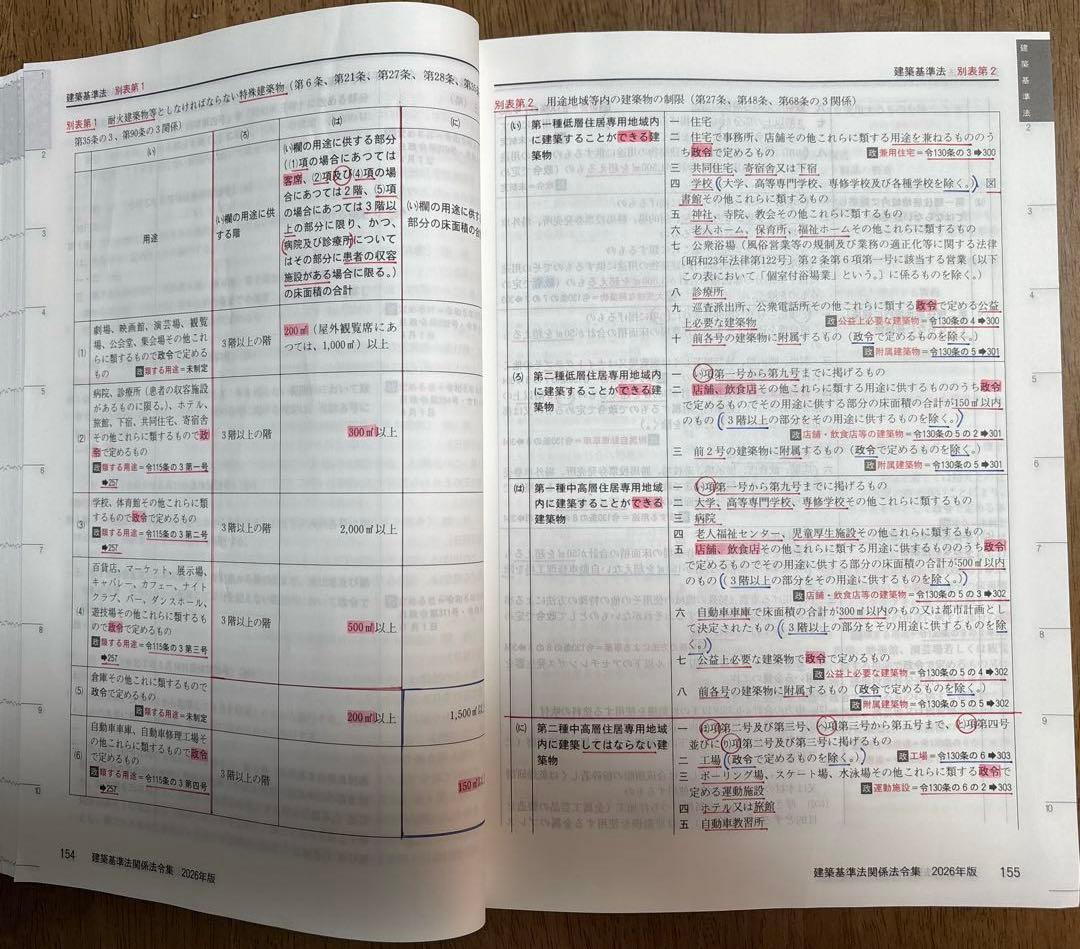 建築基準法 別表第1
別表第1 耐火建築物等としなければならない特殊建築物(第6条、第21条、第27条、第28条、
第35条の3、第90条の3関係)
(い)
(ろ)
(は)
(に)
用途
(い)欄の用途に供
する階
(い)欄の用途に供する部分
((1)項の場合にあつては
客席、(2)項及び(4)項の場
合にあつては2階、(5)項
の場合にあつては3階以
上の部分に限り、かつ、
病院及び診療所について
はその部分に患者の収容
施設がある場合に限る。)
の床面積の合計
(い)欄の用途に供す
部分の床面積の合
(1)
劇場、映画館、演芸場、観覧
場、公会堂、集会場その他これ
らに類するもので政令で定める
もの
政 類する用途=未制定
3階以上の階
200㎡(屋外観覧席にあ
つては、1,000㎡)以上
(2)
病院、診療所(患者の収容施設
があるものに限る。)、ホテル、
旅館、下宿、共同住宅、寄宿舎
その他これらに類するもので政
令で定めるもの
政 類する用途=令115条の3第一号
➡257
3階以上の階
300㎡以上
(3)
学校、体育館その他これらに類
するもので政令で定めるもの
政 類する用途=令115条の3第二号
➡257
3階以上の階
2,000㎡以上
(4)
百貨店、マーケット、展示場、
キャバレー、カフェー、ナイト
クラブ、バー、ダンスホール、
遊技場その他これらに類するも
ので政令で定めるもの
政 類する用途=令115条の3第三号
➡257
3階以上の階
500㎡以上
(5)
倉庫その他これに類するもので
政令で定めるもの
政 類する用途=未制定
200㎡以上
1,500㎡以
(6)
自動車車庫、自動車修理工場そ
の他これらに類するもので政令
で定めるもの
政 類する用途=令115条の3第四号
➡257
3階以上の階
150㎡以
154 建築基準法関係法令集 2026年版
建築基準法 別表第2
建築基準法
別表第2 用途地域等内の建築物の制限(第27条、第48条、第68条の3関係)
(い) 第一種低層住居専用地域内
に建築することができる建
築物
一 住宅
二 住宅で事務所、店舗その他これらに類する用途を兼ねるもののう
ち政令で定めるもの 政 兼用住宅=令130条の3➡300
三 共同住宅、寄宿舎又は下宿
四 学校(大学、高等専門学校、専修学校及び各種学校を除く。)、図
書館その他これらに類するもの
五 神社、寺院、教会その他これらに類するもの
六 老人ホーム、保育所、福祉ホームその他これらに類するもの
七 公衆浴場(風俗営業等の規制及び業務の適正化等に関する法律
〔昭和23年法律第122号〕第2条第6項第一号に該当する営業〔以下
この表において「個室付浴場業」という。〕に係るものを除く。)
八 診療所
九 巡査派出所、公衆電話所その他これらに類する政令で定める公益
上必要な建築物 政 公益上必要な建築物=令130条の4➡300
十 前各号の建築物に附属するもの(政令で定めるものを除く。)
政 附属建築物=令130条の5➡301
(ろ) 第二種低層住居専用地域内
に建築することができる建
築物
一 (い)項第一号から第九号までに掲げるもの
二 店舗、飲食店その他これらに類する用途に供するもののうち政令
で定めるものでその用途に供する部分の床面積の合計が150㎡以内
のもの(3階以上の部分をその用途に供するものを除く。)
政 店舗・飲食店等の建築物=令130条の5の2➡301
三 前2号の建築物に附属するもの(政令で定めるものを除く。)
政 附属建築物=令130条の5➡301
(は) 第一種中高層住居専用地域
内に建築することができる
建築物
一 (い)項第一号から第九号までに掲げるもの
二 大学、高等専門学校、専修学校その他これらに類するもの
三 病院
四 老人福祉センター、児童厚生施設その他これらに類するもの
五 店舗、飲食店その他これらに類する用途に供するもののうち政令
で定めるものでその用途に供する部分の床面積の合計が500㎡以内
のもの(3階以上の部分をその用途に供するものを除く。)
政 店舗・飲食店等の建築物=令130条の5の3➡302
六 自動車車庫で床面積の合計が300㎡以内のもの又は都市計画とし
て決定されたもの(3階以上の部分をその用途に供するものを除
く。)
七 公益上必要な建築物で政令で定めるもの
政 公益上必要な建築物=令130条の5の4➡302
八 前各号の建築物に附属するもの(政令で定めるものを除く。)
政 附属建築物=令130条の5の5➡302
(に) 第二種中高層住居専用地域
内に建築してはならない建
築物
一 (ほ)項第二号及び第三号、(へ)項第三号から第五号まで、(と)項第四号
並びに(り)項第二号及び第三号に掲げるもの
二 工場(政令で定めるものを除く。) 政 工場=令130条の6➡303
三 ボーリング場、スケート場、水泳場その他これらに類する政令で
定める運動施設 政 運動施設=令130条の6の2➡303
四 ホテル又は旅館
五 自動車教習所
2
3
4
5
6
7
8
9
10
建築基準法関係法令集 2026年版 155